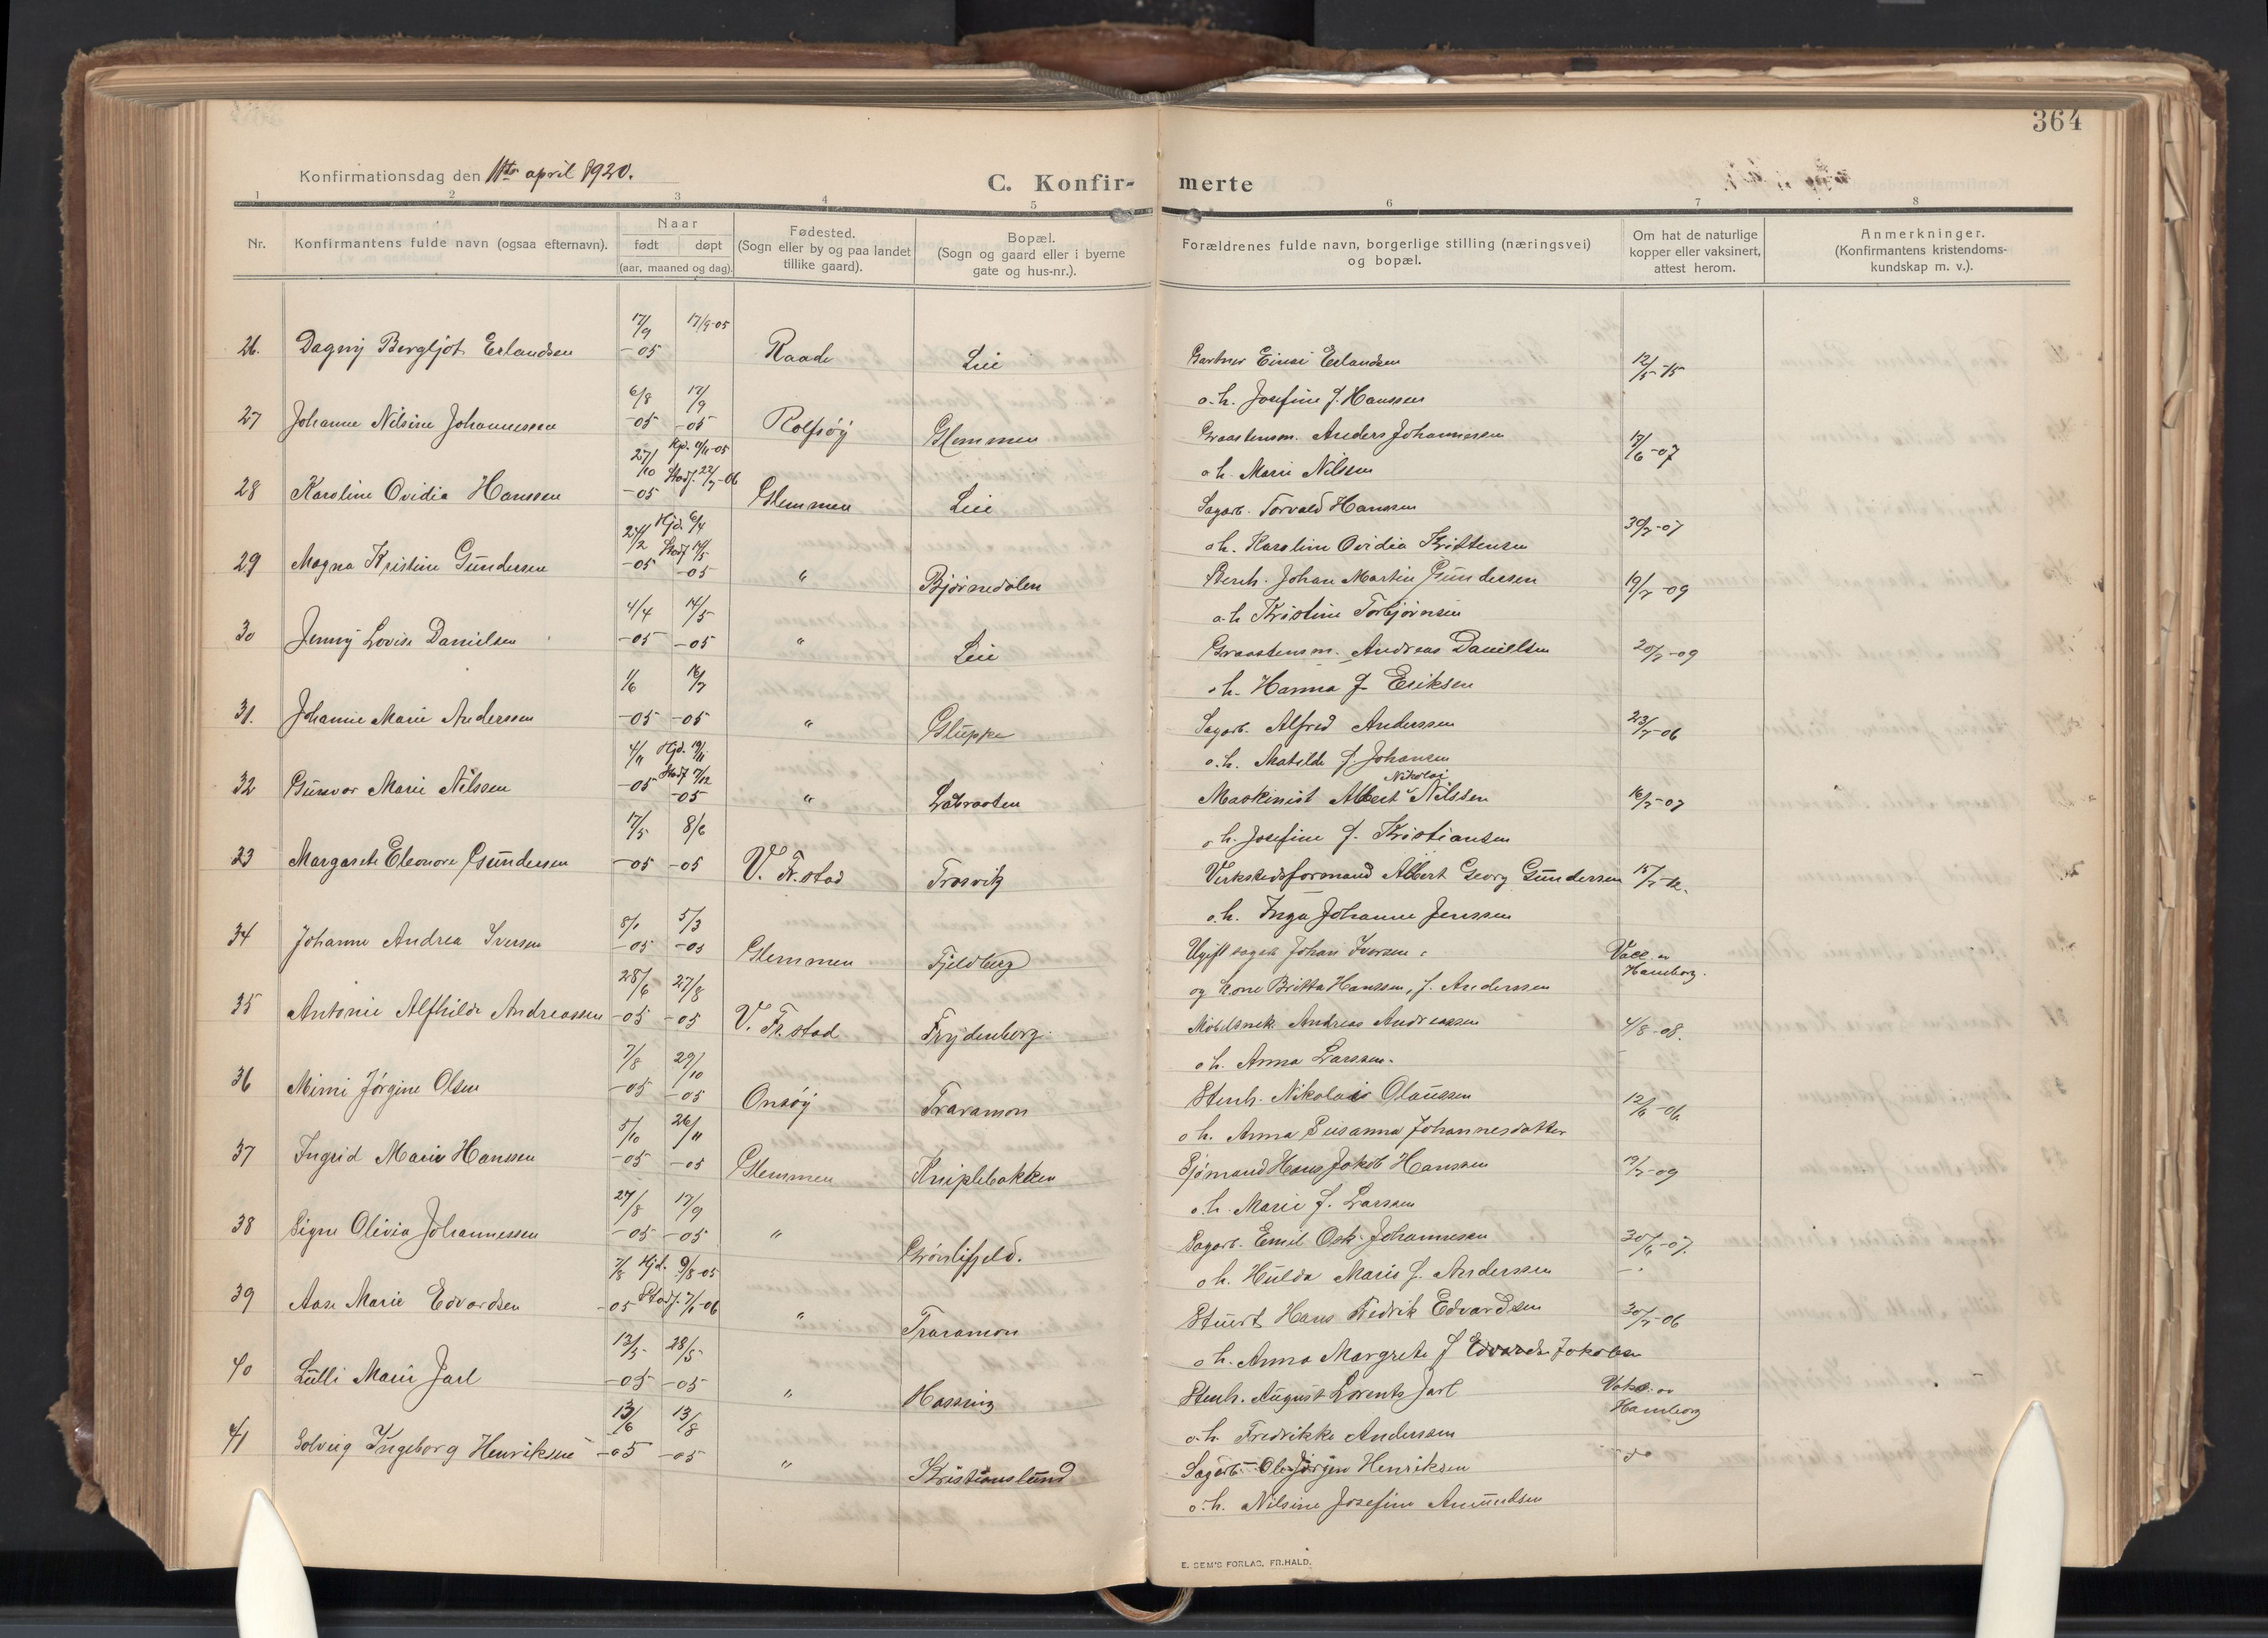 364
Konfirmationsdag den 11te april 1920.
C. Konfir- merte
1 2 3 4 5 6 7 8
Nr. Konfirmantens fulde navn (ogsaa efternavn). Naar født døpt (aar, maaned og dag). Fødested. (Sogn eller by og paa landet tillike gaard). Bopæl. (Sogn og gaard eller i byerne gate og hus-nr.). Forældrenes fulde navn, borgerlige stilling (næringsvei) og bopæl. Om hat de naturlige kopper eller vaksinert, attest herom. Anmerkninger. (Konfirmantens kristendoms-kundskap m. v.).
26. Dagny Bergljot Erlandsen 17/9 -05 17/9-05 Raade Lie Gartner Einar Erlandsen 12/5-15
o. h. Josefine f. Hanssen
27 Johanne Nilsine Johannessen 6/8 -05 17/9 -05 Rolfsøy Glemmen Graastensm. Anders Johannessen 17/6-07
o. h. Marie Nilssen
28 Karoline Ovidia Hanssen 27/10 -05 Glemmen Lie Sagarb. Torvald Hanssen 30/7-07
o h. Karoline Ovidia Kristensen
29 Magna Kristine Gundersen 24/2 -05 Hjd. 6/4 Stadf. 14/5 -05 " Bjørnedalen Stenh. Johan Martin Gundersen 19/7-09
o. h Kristine Torbjørnsen
30 Jenny Lovise Danielsen 4/4 -05 14/5 -05 " Lie Graastensm. Andreas Daniellsen 20/7-09
o h. Hanna f. Eriksen
31. Johanne Marie Anderssen 1/6 -05 16/7 -05 " Gluppe Sagarb. Alfred Anderssen 23/7-06
o. h. Matilde f. Johansen
32 Gunvor Marie Nilssen 4/11 -05 Hjd. 19/11 Stadf 17/12 -05 " Labraaten Maskinist Albert Nikolai Nilssen 16/7-07
o h. Josefine f. Kristiansen
33 Margarete Eleonore Gundersen 17/5 -05 8/6 -05 V. Fr.stad Trosvik Verkstedsformand Albert Georg Gundersen 15/7-12.
o. h. Inga Johanne Jenssen
34 Johanne Andrea Iversen 8/1 -05 5/3 -05 Glemmen Fjeldberg Ugift sagarb. Johan Iversen Vacc. av Hamborg.
og kone Britta Hanssen, f. Anderssen
35 Antonie Alfhilde Andreassen 28/6 -05 27/8 -05 V. Fr.stad Frydenberg Møbelsnek. Andreas Andreassen 4/8-08.
o h. Anna Larssen.
36 Mimi Jørgine Olsen 7/8 -05 29/10 -05 Onsøy Traramon Stenh. Nikolai Olaussen 12/6-06
o h. Anna Susanna Johannesdatter
37 Ingrid Marie Hanssen 5/10 -05 26/11 -05 Glemmen Kniplebakken Sjømand Hans Jakob Hanssen 17/7-09
o. h. Marie f. Larssen
38 Signe Olivia Johannessen 27/8 -05 17/9 -05 " Grønlifjeld. Sagarb. Emil Osk. Johannesen 30/6-07.
o h. Hulda Marie f. Anderssen
39 Aase Marie Edvardsen 7/8 -05 Hjd. 9/8-05 Stadf. 7/1-06 " Traramon Stuert Hans Fredrik Edvardsen 30/7-06
o h. Anna Margrete f Jakobsen
40 Lulli Marie Jarl 13/5 -05 28/5 -05 " Hassing Stenh. August Lorents Jarl Vaks. av Hamborg
o. h. Fredrikke Anderssen
41 Solveig Ingeborg Henriksen 13/6 -05 13/8 -05 " Kristianslund Sagarb. Ole Jørgen Henriksen do
o. h. Nilsine Josefine Amundsen
E. SEM'S FORLAG, FR.HALD.